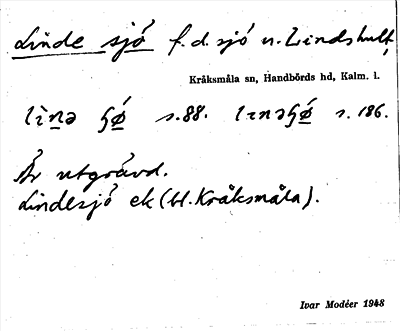 Linde sjö f.d. sjö n. Lindshult,
Kråksmåla sn, Handbörds hd, Kalm. l.
s.88. s. 186.
Är utgrävd.
Lindesjö ek (bl. Kråksmåla).
Ivar Modéer 1948